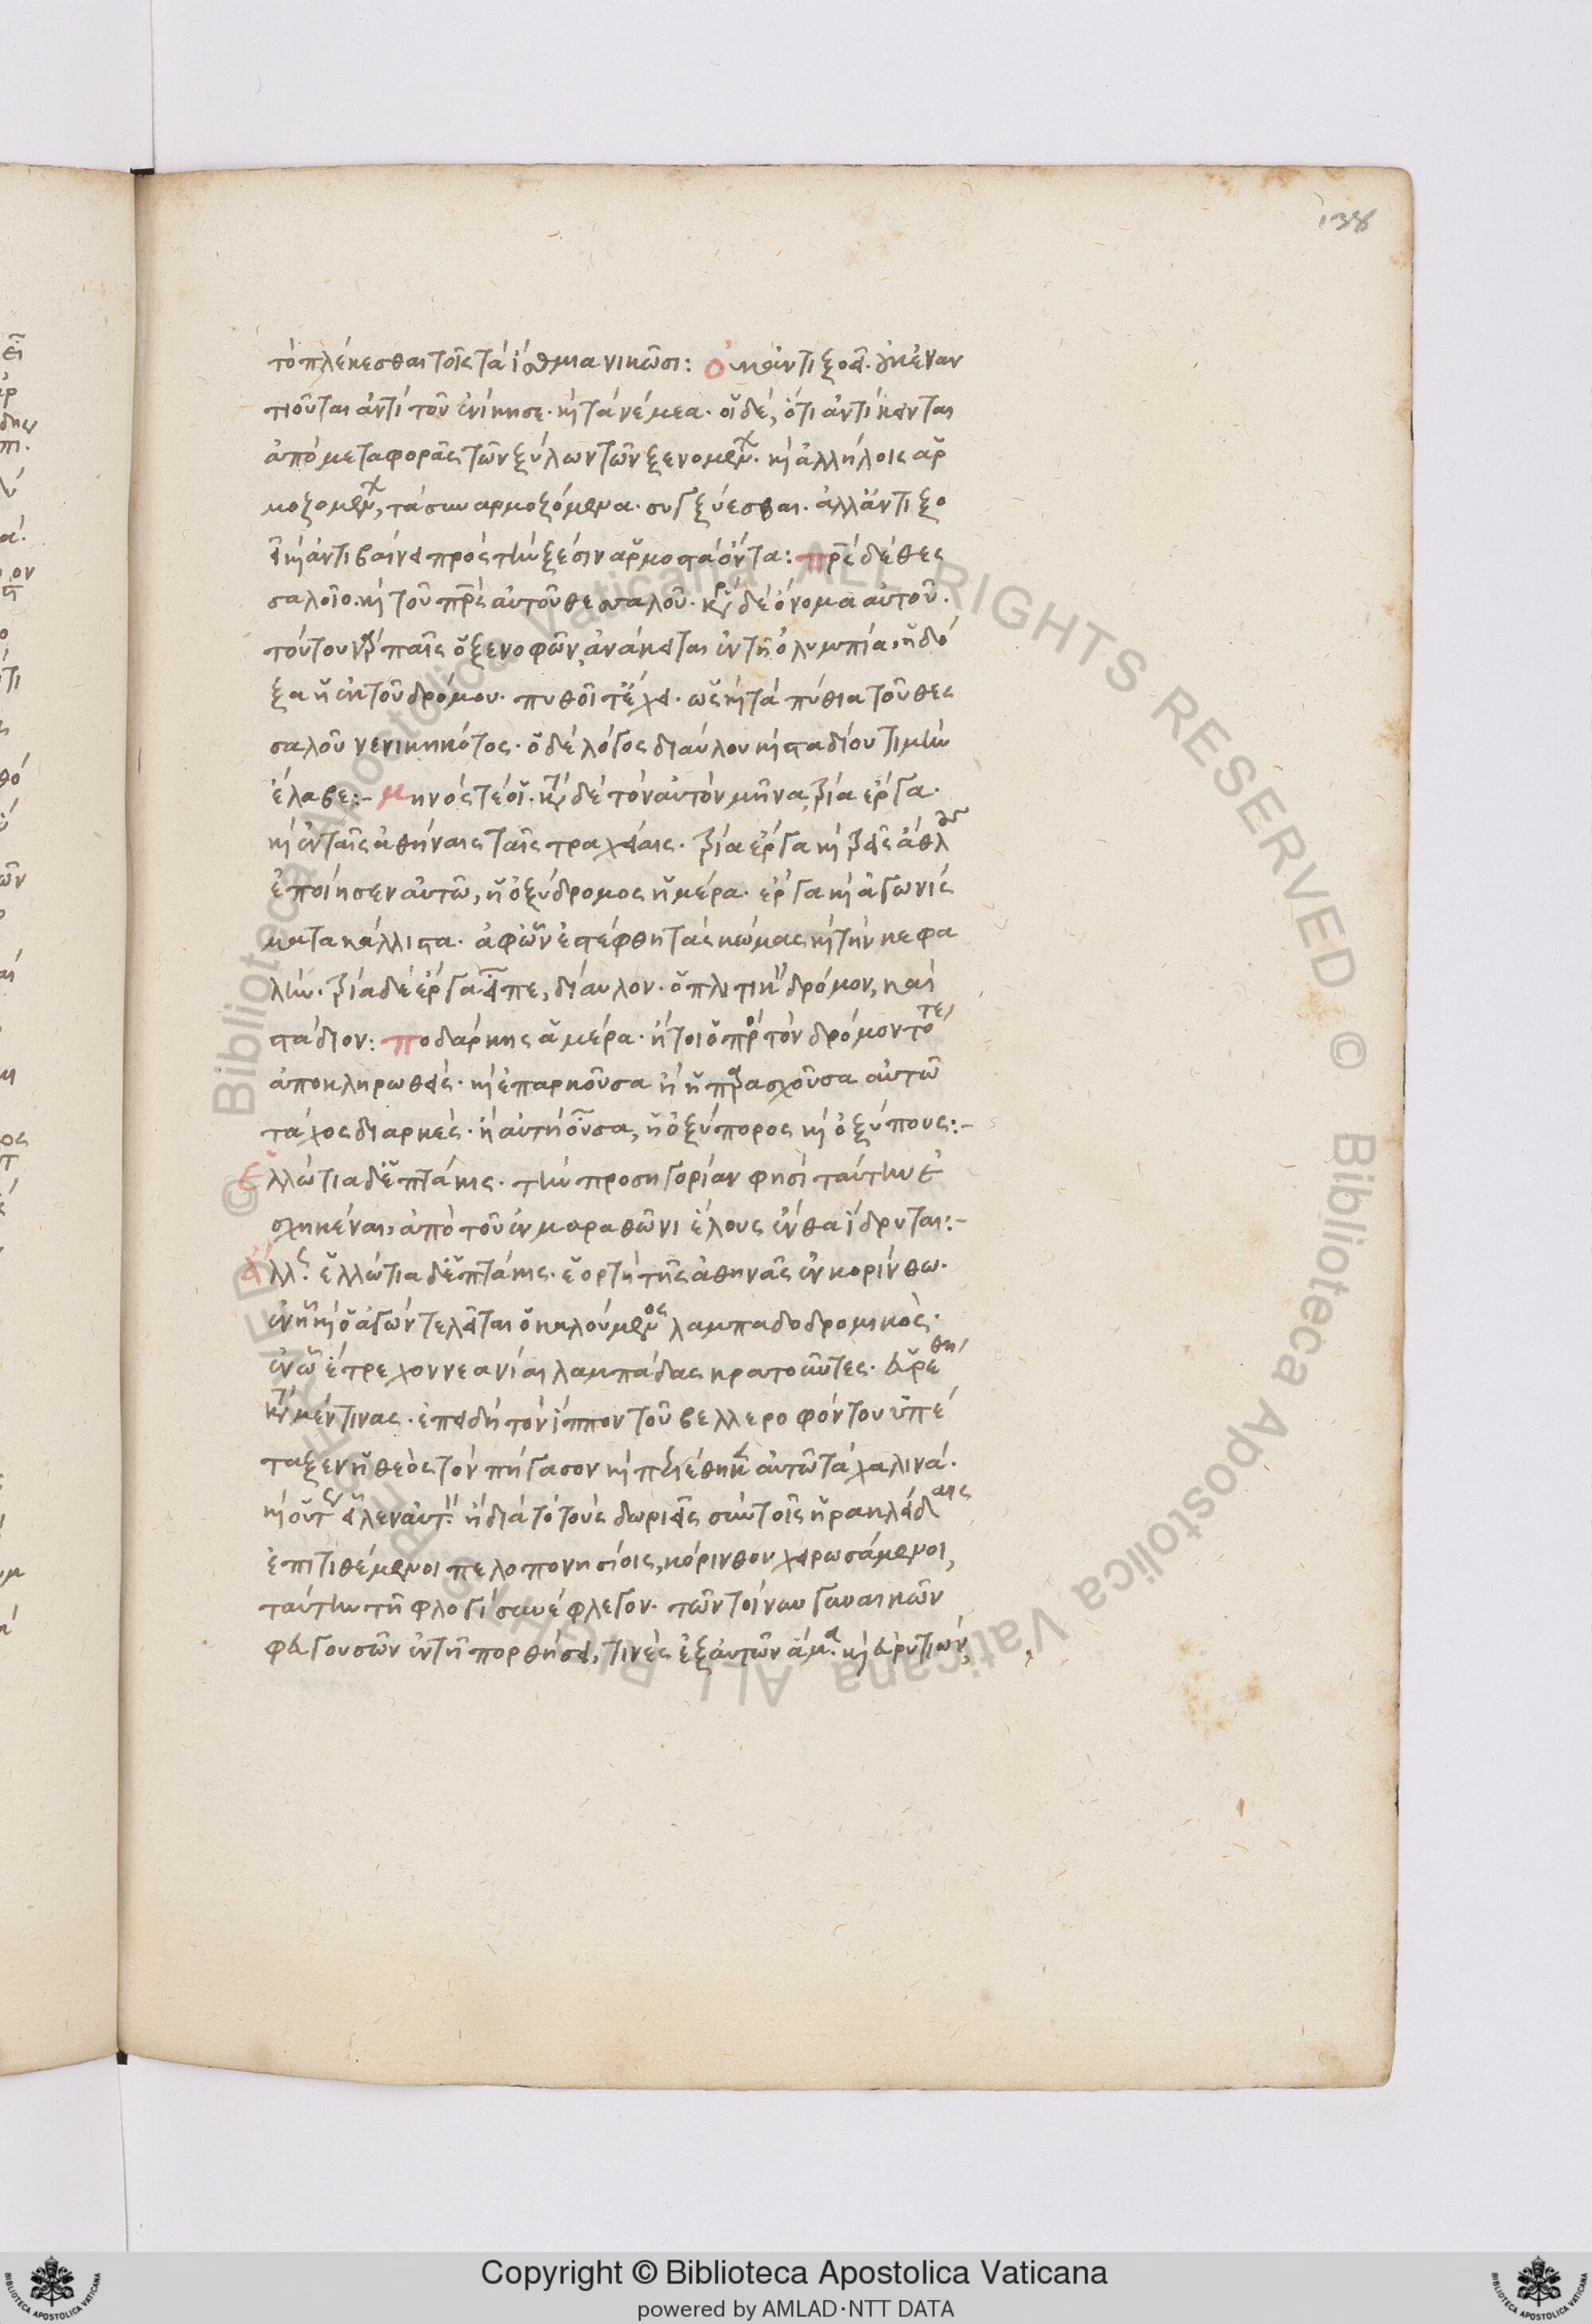 138
τὸ πλέκεσθαι τοῖς τὰ ἴσθμια νικῶσι: οὐκ ἀντιξοεῖ. οὐκ ἐναν
τιοῦται ἀντὶ τοῦ ἐνίκησε. καὶ τὰ νέμεα. οἱ δὲ, ὅτι ἀντίκειται
ἀπὸ μεταφορᾶς τῶν ξύλων τῶν ξενομένων. καὶ ἀλλήλοις ἁρ
μοζομένων, τὰ συναρμοζόμενα. συγξύεσθαι. ἀλλ' ἀντιξο
εῖ καὶ ἀντιβαίνει πρὸς τὴν ξέσιν ἁρμοστὰ ὄντα: πατρὸς δὲ θες
σαλοῖο. καὶ τοῦ πατρὸς αὐτοῦ θεσσαλοῦ. κύριον δὲ ὄνομα αὐτοῦ.
τούτου γὰρ παῖς ὁ ξενοφῶν, ἀνάκειται ἐν τῇ ὀλυμπίᾳ, ἡ δό
ξα ἡ ἐκ τοῦ δρόμου. πυθοῖ τ' ἔχει. ὡς καὶ τὰ πύθια τοῦ θες
σαλοῦ νενικηκότος. ὁ δὲ λόγος διαύλου καὶ σταδίου τιμὴν
ἔλαβε:- μηνός τέ οἱ. κατὰ δὲ τὸν αὐτὸν μῆνα, τρία ἔργα.
καὶ ἐν ταῖς ἀθήναις ταῖς τραχείαις. τρία ἔργα καὶ τρεῖς ἄθλους
ἐποίησεν αὐτῷ, ἡ ὀξύδρομος ἡμέρα. ἔργα καὶ ἀγωνίς
ματα κάλλιστα. ἀφ' ὧν ἐστέφθη τὰς κώμας καὶ τὴν κεφα
λήν. τρία δὲ ἔργα εἶπε, δίαυλον. ὁπλιτικὸν δρόμον, καὶ
στάδιον: ποδάρκης ἁμέρα. ἤτοι ὁ πρὸς τὸν δρόμον τότε
ἀποκληρωθεὶς. καὶ ἐπαρκοῦσα ἢ ἡ παρασχοῦσα αὐτῷ
τάχος διαρκὲς. ἢ αὐτὴ οὖσα, ἡ ὀξύπορος καὶ ὀξύπους:-
ἐλλώτια δ' ἑπτάκις. τὴν προσηγορίαν φησὶ ταύτην ἐ
σχηκέναι, ἀπὸ τοῦ ἐν μαραθῶνι ἕλους ἔνθα ἵδρυται:-
ἄλλως. ἑλλώτια δ' ἑπτάκις. ἑορτὴ τῆς ἀθηνᾶς ἐν κορίνθῳ.
ἐν ᾗ καὶ ὁ ἀγὼν τελεῖται ὁ καλούμενος λαμπαδοδρομικὸς.
ἐν ᾧ ἔτρεχον νεανίαι λαμπάδας κρατοῦντες. εὑρέθη
κατὰ μέν τινας. ἐπειδὴ τὸν ἵππον τοῦ βελλεροφόντου ὑπέ
ταξεν ἡ θεὸς τὸν πήγασον καὶ περιέθηκεν αὐτῷ τὰ χαλινά.
καὶ οὕτως εἷλεν αὐτὸν. ἢ διὰ τὸ τοὺς δωριεῖς σὺν τοῖς ἡρακλείδαις
ἐπιτιθέμενοι πελοπονησίοις, κόρινθον χειρωσάμενοι,
ταύτην τῇ φλογὶ συνέφλεγον. τῶν τοίνυν γυναικῶν
φευγουσῶν ἐν τῇ πορθήσει, τινὲς ἐξ αὐτῶν ἅμα καὶ εὐρυτιών,
Copyright © Biblioteca Apostolica Vaticana
powered by AMLAD·NTT DATA